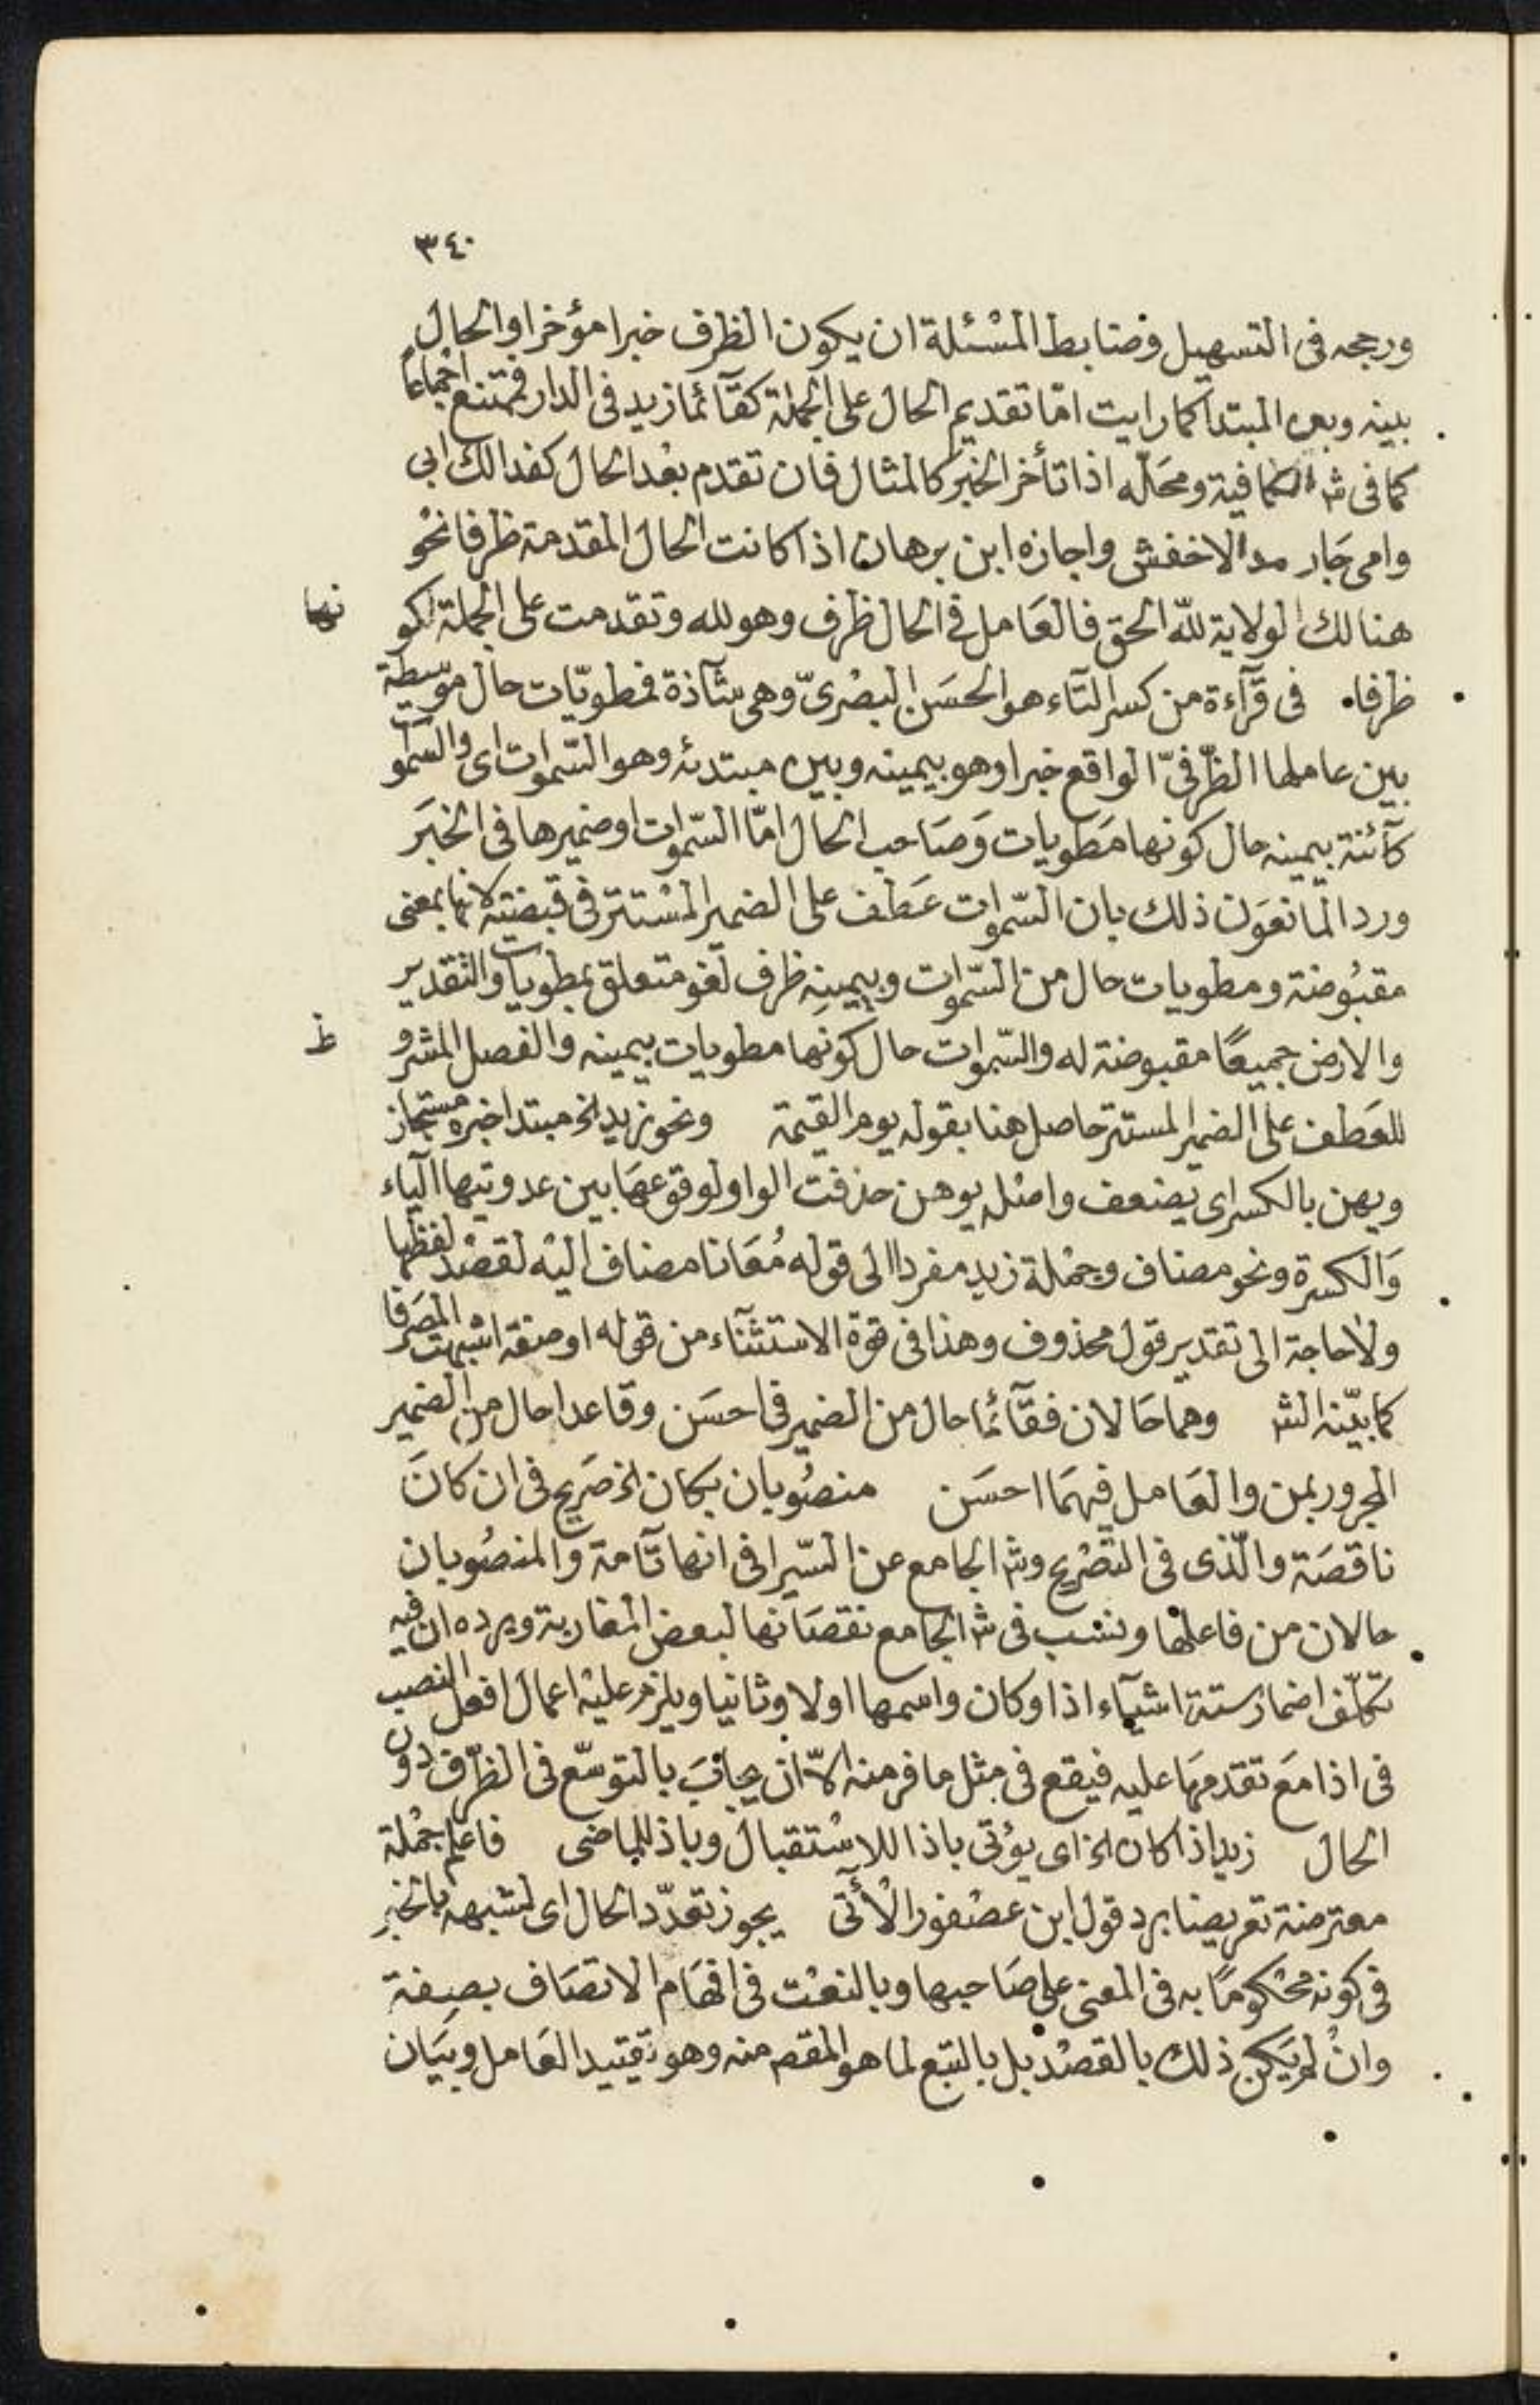 ٣٤٠
ورجحه فى التسهيل وضابط المسْئلة ان يكون الظرف خبرا مؤخرا والحال
بينه وبين المبتدا كما رايت امّا تقديم الحال على الجملة كقآئما زيد فى الدار فممتنع اجماعاً
كما فى شرح الكافية ومحَلّه اذا تأخر الخبَر كالمثال فان تقدم بعْد الحال كفدا لك ابى
وامى جَاز عند الاخفش واجازه ابن برهان اذا كانت الحال المقدمة ظرفا نحْو
هنالك الولاية للّه الحق فالعَامل فى الحال ظرف وهو لله وتقدمت على الجملة لكو نها
ظرفا٠ فى قرآءة من كسر التآء هو الحسَن البصْرىّ وهى شآذة فمطويّات حال موسّطة
بين عاملها الظّرفىّ الواقع خبرا وهو بيمينه وبين مبتدئه وهو السّموات اى والسّموات
كآئنة بيمينه حال كونها مَطويات وَصَاحب الحال امّا السّموات او ضميرها فى الخبَر
ورد المانعَون ذلك بان السّموات عَطف على الضمير المسْتتر فى قبضته لانها بمعنى
مقبُوضة ومطويات حال من السّموات وبيمينِه ظرف لغو متعلق بمطويات والتقدير
والارض جميعًا مقبوضة له والسّموات حال كونها مطويات بيمينه والفصل المشرو ط
للعَطف على الضمير المستتر حاصل هنا بقوله يوم القيمة ونحو زيد الخ مبتدا خبره مستجاز
ويهن بالكسر اى يضعف واصْله يوهن حذفت الواو لوقوعهَا بين عدوتيها الياء
وَالكسرة ونحو مضاف وجمْلة زيد مفردا الى قوله مُعَانا مضاف اليْه لقصْد لفظها
ولا حاجة الى تقدير قول محذوف وهذا فى قوة الاستثنآء من قوله او صفة اشبهت المصَرفا
كما بيّنه الش وهما حَالان فقآئما حال من الضمير فى احسَن وقاعدا حال من الضمير
المجرور بمن والعَامل فيهمَا احسَن منصُوبان بكان الخ صَريح فى ان كانَ
ناقصَة والّذى فى التصْريح وش الجامع عن السّيرافى انها تآمة والمنصُوبان
حالان من فاعلها ونسَب فى ش الجامع نقصَانها لبعض المغاربة ويرده ان فيه
تكلّف اضمار ستة اشيآء اذا وكان واسمها اولا وثانيا ويلزم عليْه اعمال افعل النصب
فى اذا مَع تقدمهَا عليه فيقع فى مثل ما فر منه الاّ ان يجابَ بالتوسّع فى الظّرف دون
الحال زيد اذا كان الخ اى يؤتى باذا للاسْتقبال وباذ للماضى فاعلم جمْلة
معترضة تعريضا برد قول ابن عصْفور الْآتى يجوز تعدّد الحال اى لشبهه بالخبر
فى كونه محْكومًا به فى المعْنى على صَاحبها وبالنعْت فى افهَام الاتصَاف بصِفة
وانْ لم يَكن ذلك بالقصْد بل بالتبع لما هو المقصد منه وهو تقييد العَامل وبيَان